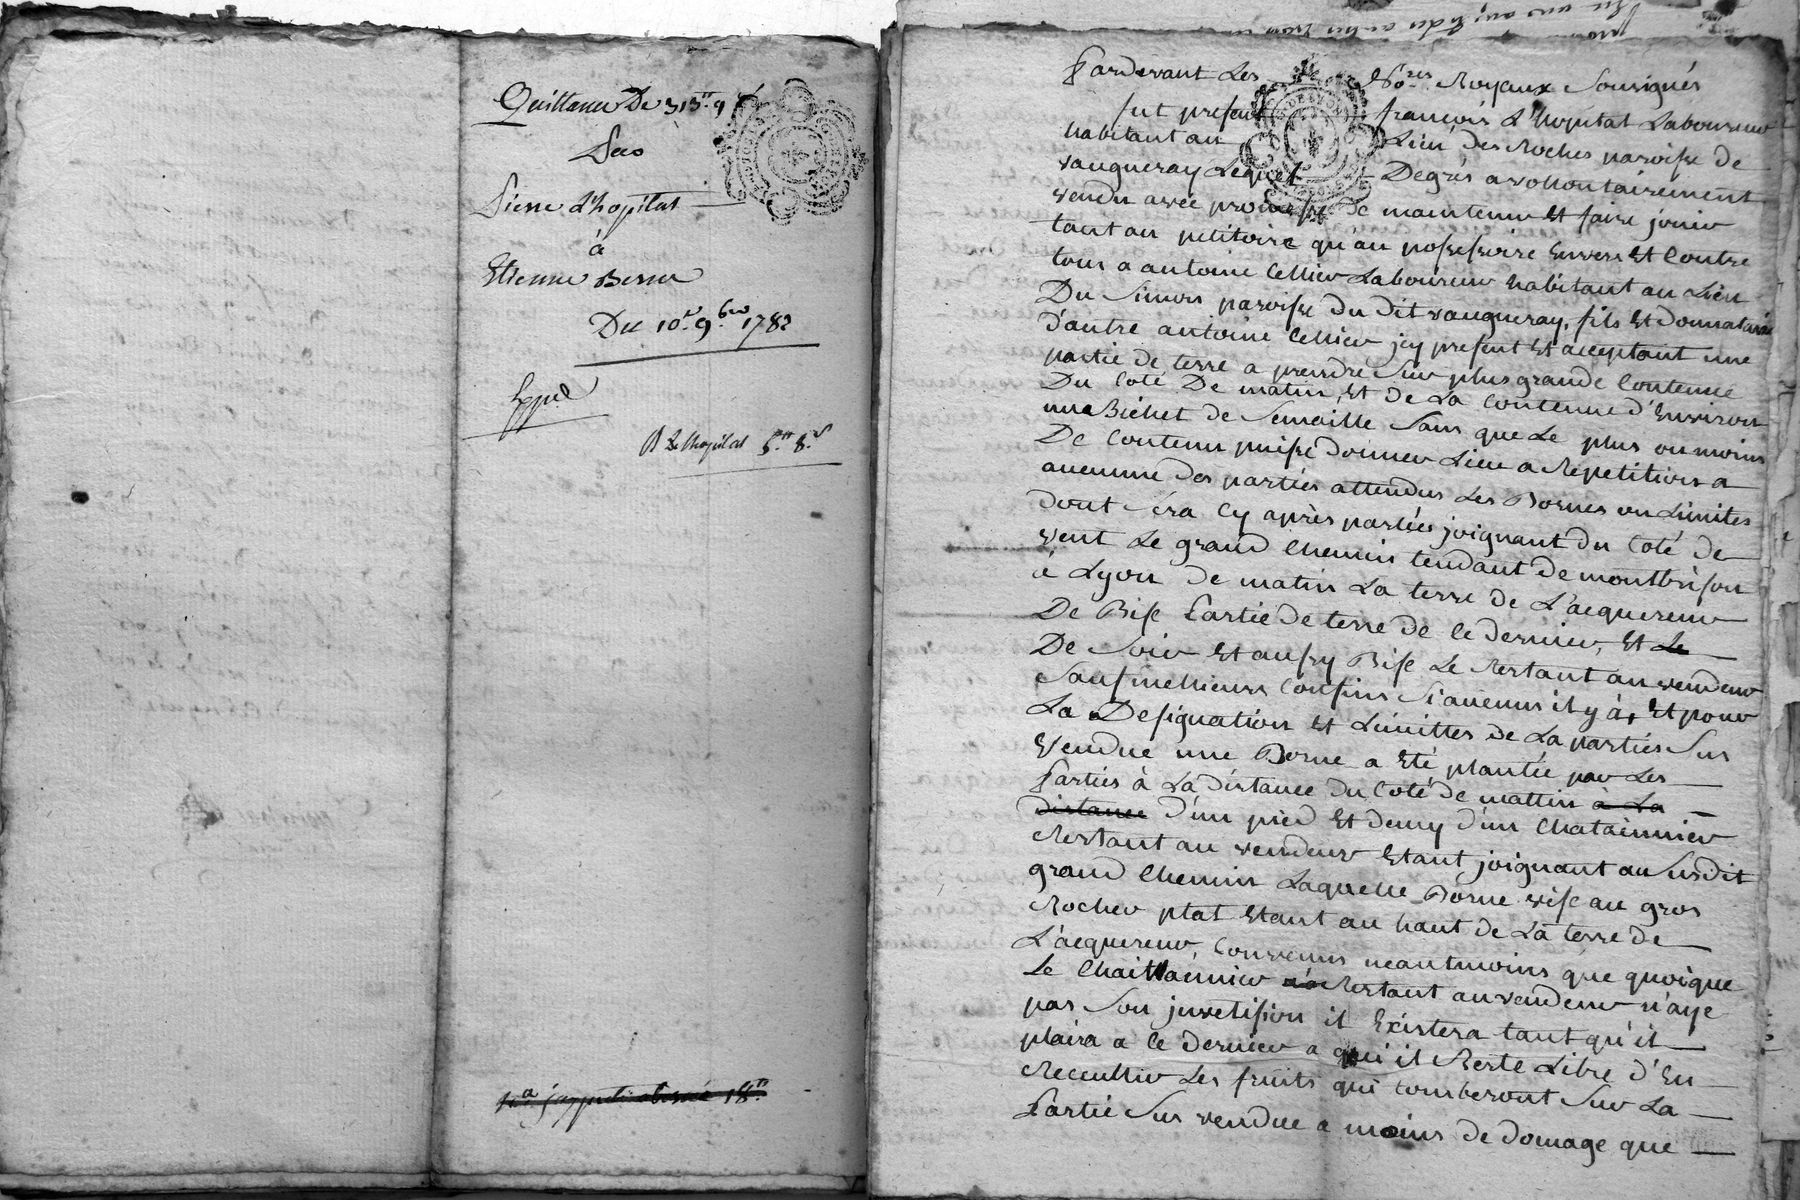 Quittance De 313ᵗᵗ 9ˢ
Sieur d'hopital
à
Etienne Besson
Du 10ᵉ 9.bre 1782
Expᵉ
R de Lhopital 5ᵗᵗ 8.ˢ
Pardevant Les No.res Royaux Sousignés
fut present françois L'hopital Laboureur
habitant au Lieu des Roches paroisse de
vaugneray Lequel De grés a vollontairement
vendu avéc promesse de maintenir et faire jouir
tant au petitoire qu'au possessoire Envers Et Contre
tous a antoine Cellier Laboureur habitant au Lieu
Du Simon paroisse du dit vaugneray, fils Et donnataire
d'autre antoine Cellier jcy present Et acceptant une
partie de terre a prendre Sur plus grande Contenue
Du Coté De matin, Et de La Contenue d'Environ
une Bichet de Semaille Sans que Le plus ou moins
De Contenu puisse donner Lieu a Repetition a
aucunne des parties attendus Les Bornes ou Limites
dont Séra Cy après parlées joignant du Coté de
vent Le grand Chemin tendant de montbrison
à Lyon de matin La terre de L'acquereur
De Bise Partie de terre de Ce dernier, Et Le
De Soir Et aussy Bise Le Restant au vendeur
Sauf meilleurs Confins Si aucuns il y à, Et pour
La Designation Et Limittes de La parties Sus
Vendue une Borne a Eté plantée par Les
Parties à La distance du Coté de mattin à La
distance d'un pied Et demy d'un Chatainnier
Restant au vendeur Etant joignant au Susdit
grand Chemin Laquelle Borne vise au gros
Rocher plat Etant au haut de La terre de
L'acquereur, Convenus neantmoins que quoique
Le Chaittainnier Restant au vendeur n'aye
pas Son juvetission il Existera tant qu'il
plaira a Ce dernier a qui il Reste Libre d'En
Reccullir Les fruits qui tomberont Sur La
Partie Sus vendue a moins de domage que